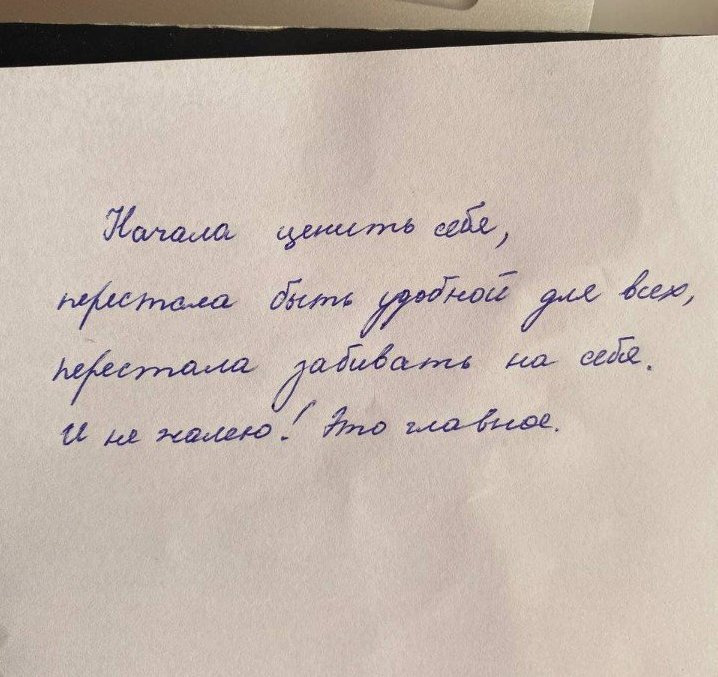 Начала ценить себя,
перестала быть удобной для всех,
перестала забивать на себя.
И не жалею! Это главное.